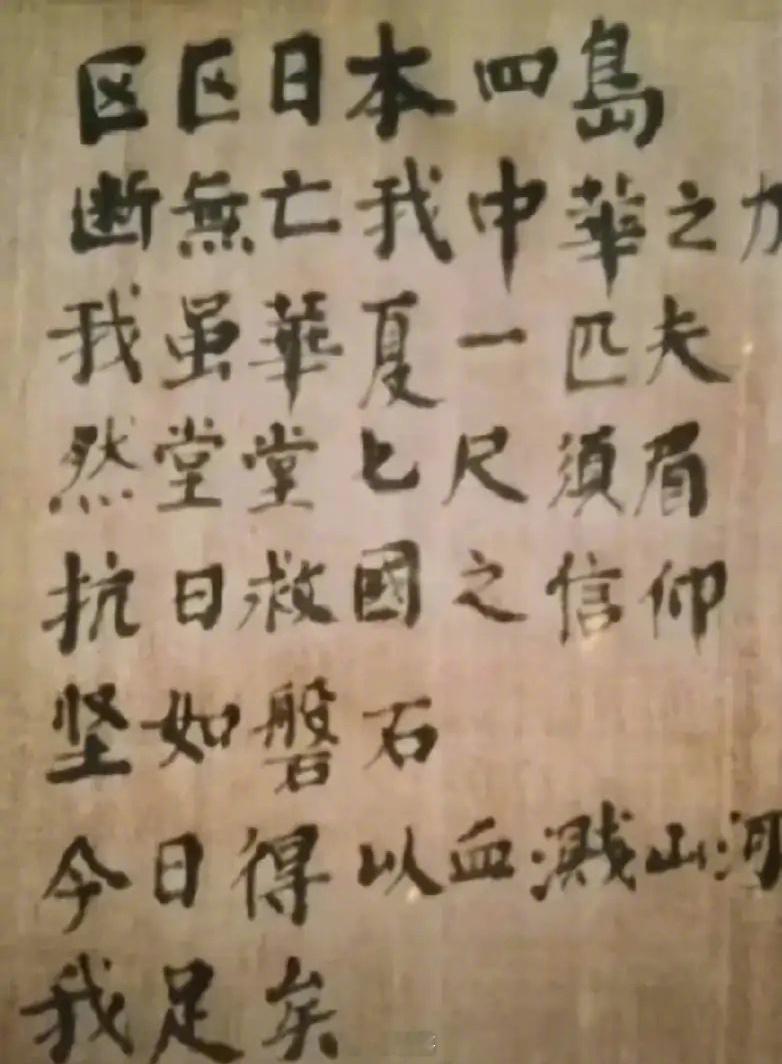 区区日本四島
断無亡我中華之力
我虽華夏一匹夫
然堂堂七尺須眉
抗日救國之信仰
坚如磐石
今日得以血溅山河
我足矣